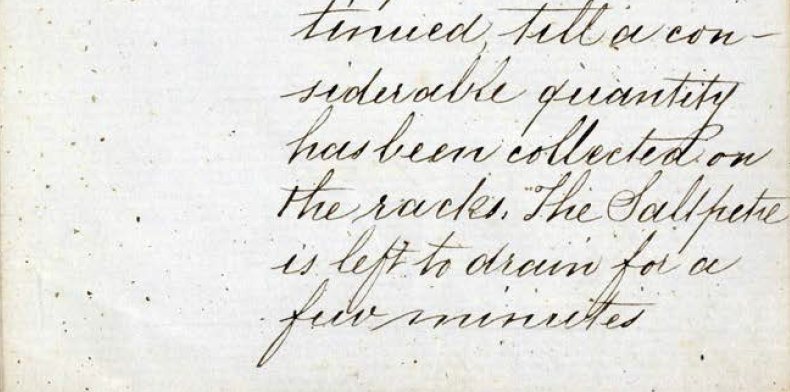 tinued, till a con-
siderable quantity
has been collected on
the racks. The Saltpetre
is left to drain for a
few minutes